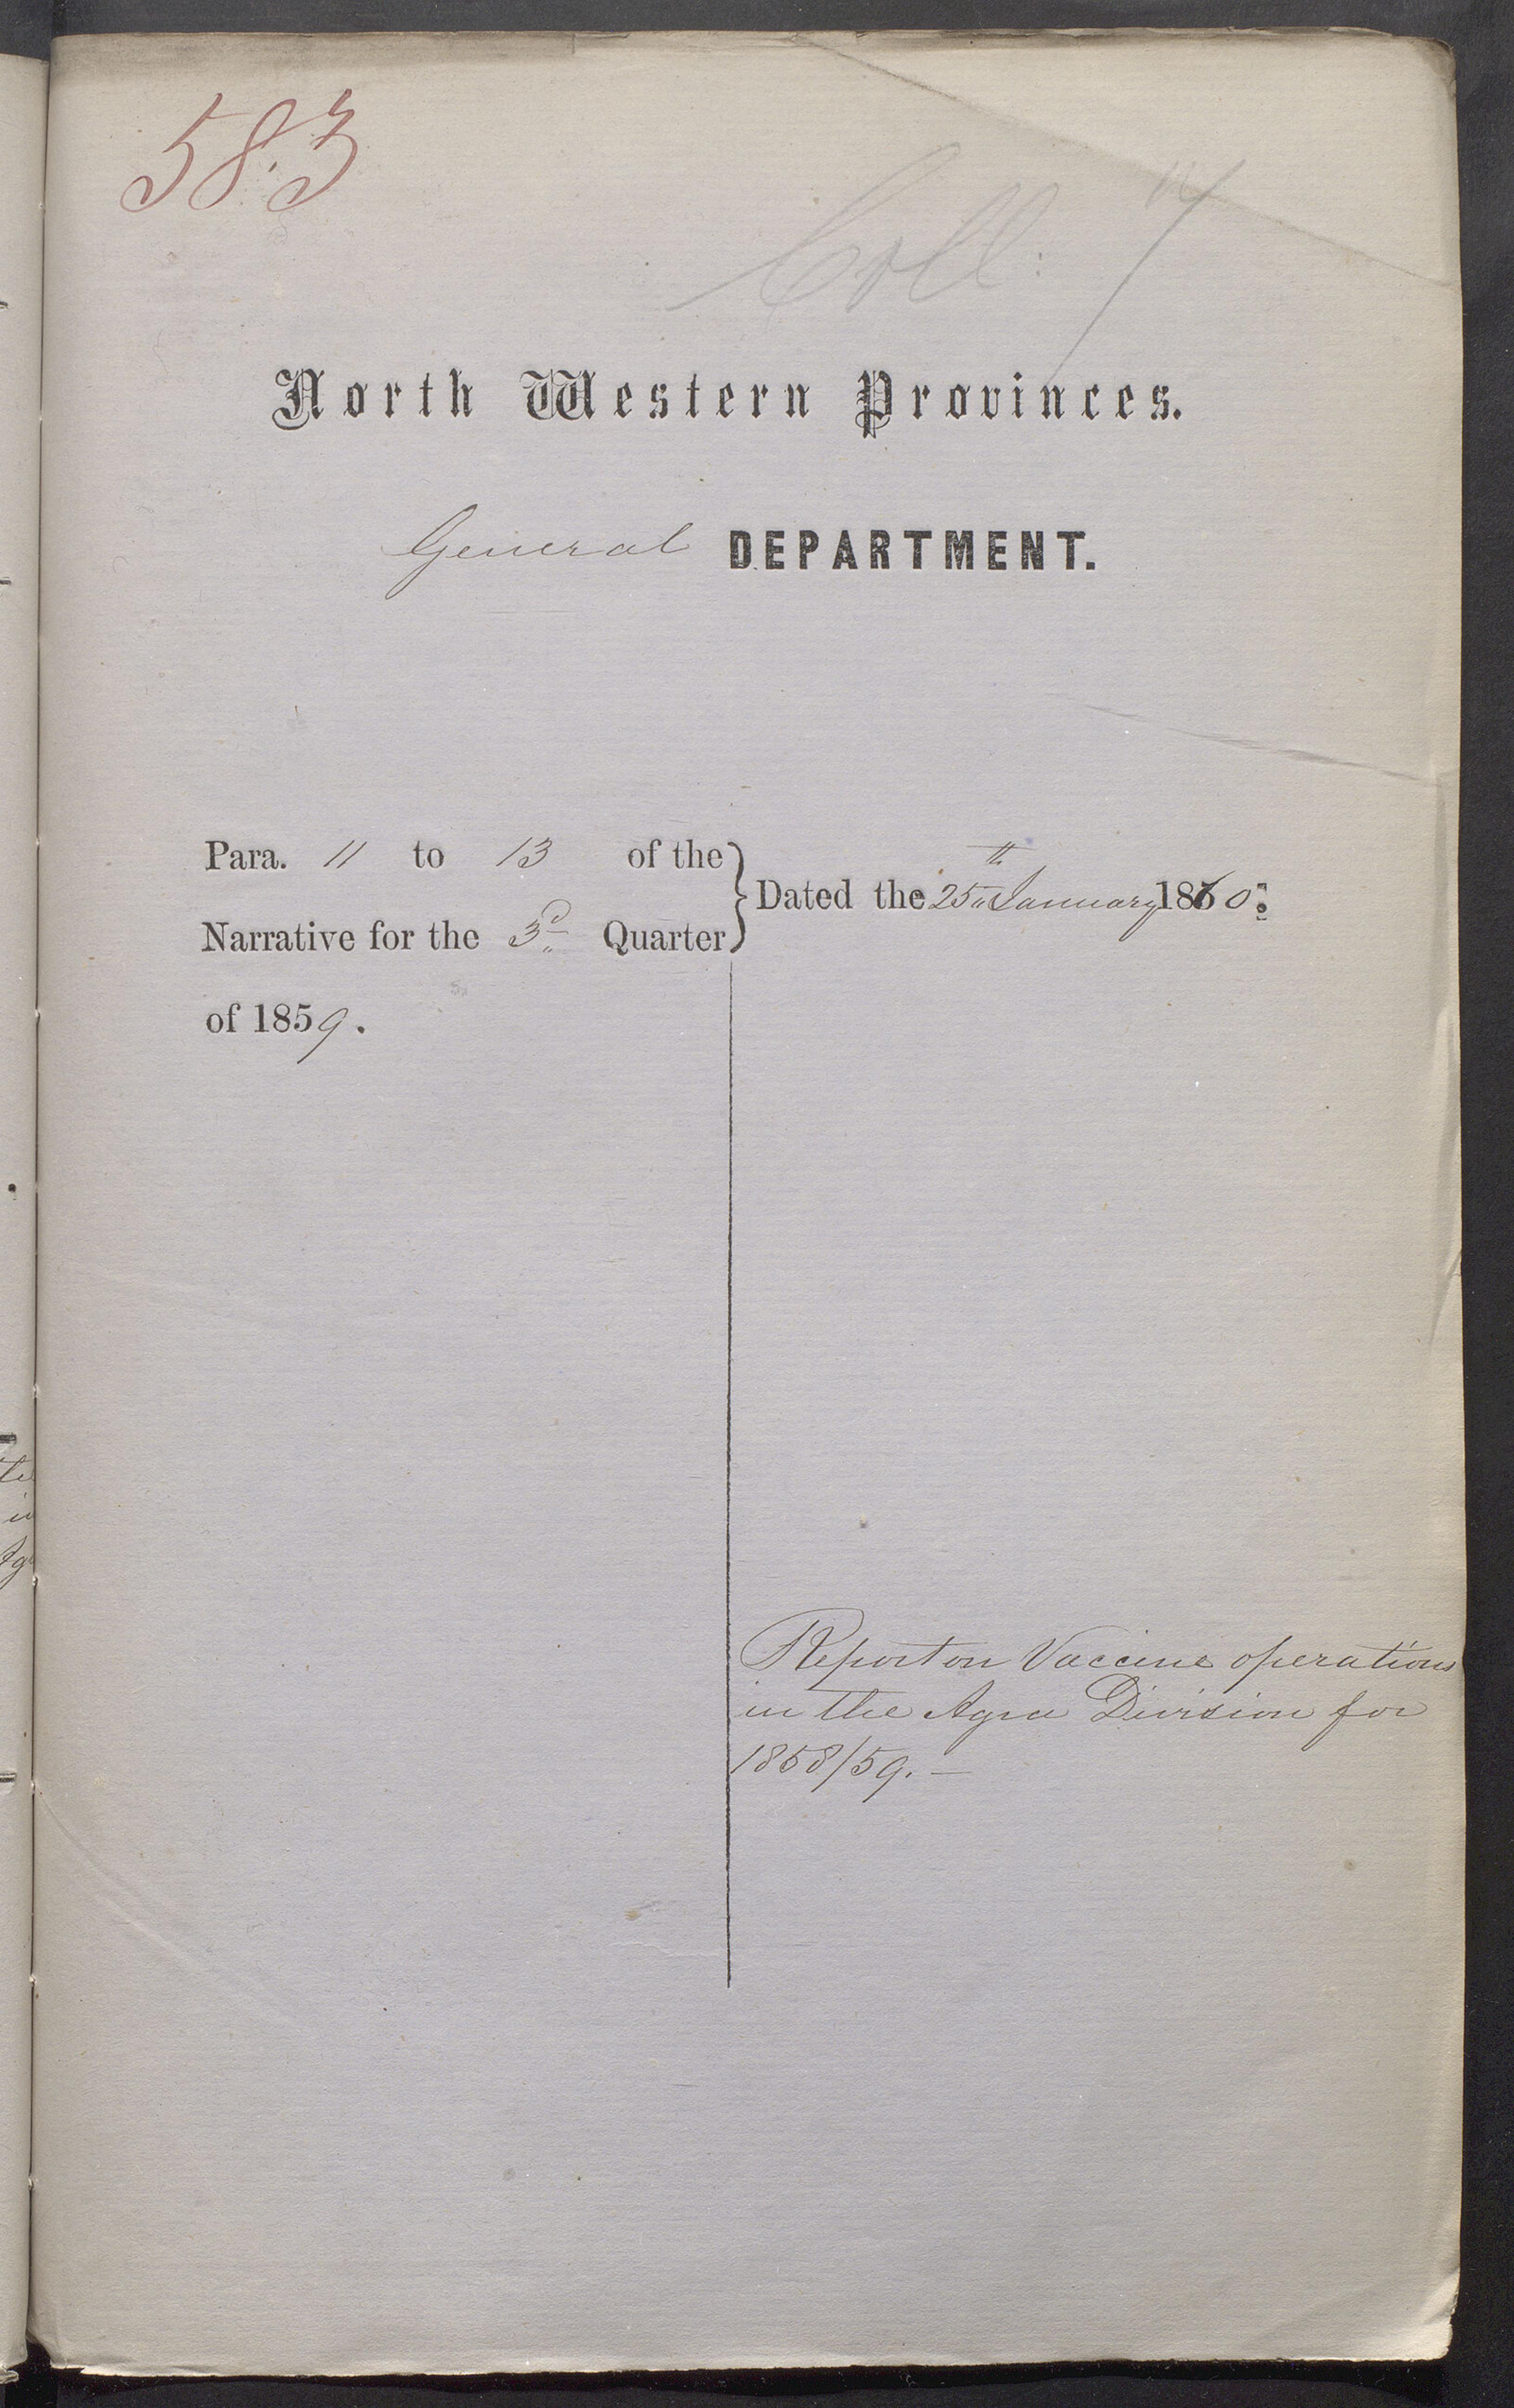 583
Coll: 14
North Western Provinces.
General DEPARTMENT.
Para. 11 to 13 of the
Narrative for the 3d Quarter
of 1859.
Dated the 25th January 1860.
Report on Vaccine operations
in the Agra Division for
1858/59. —